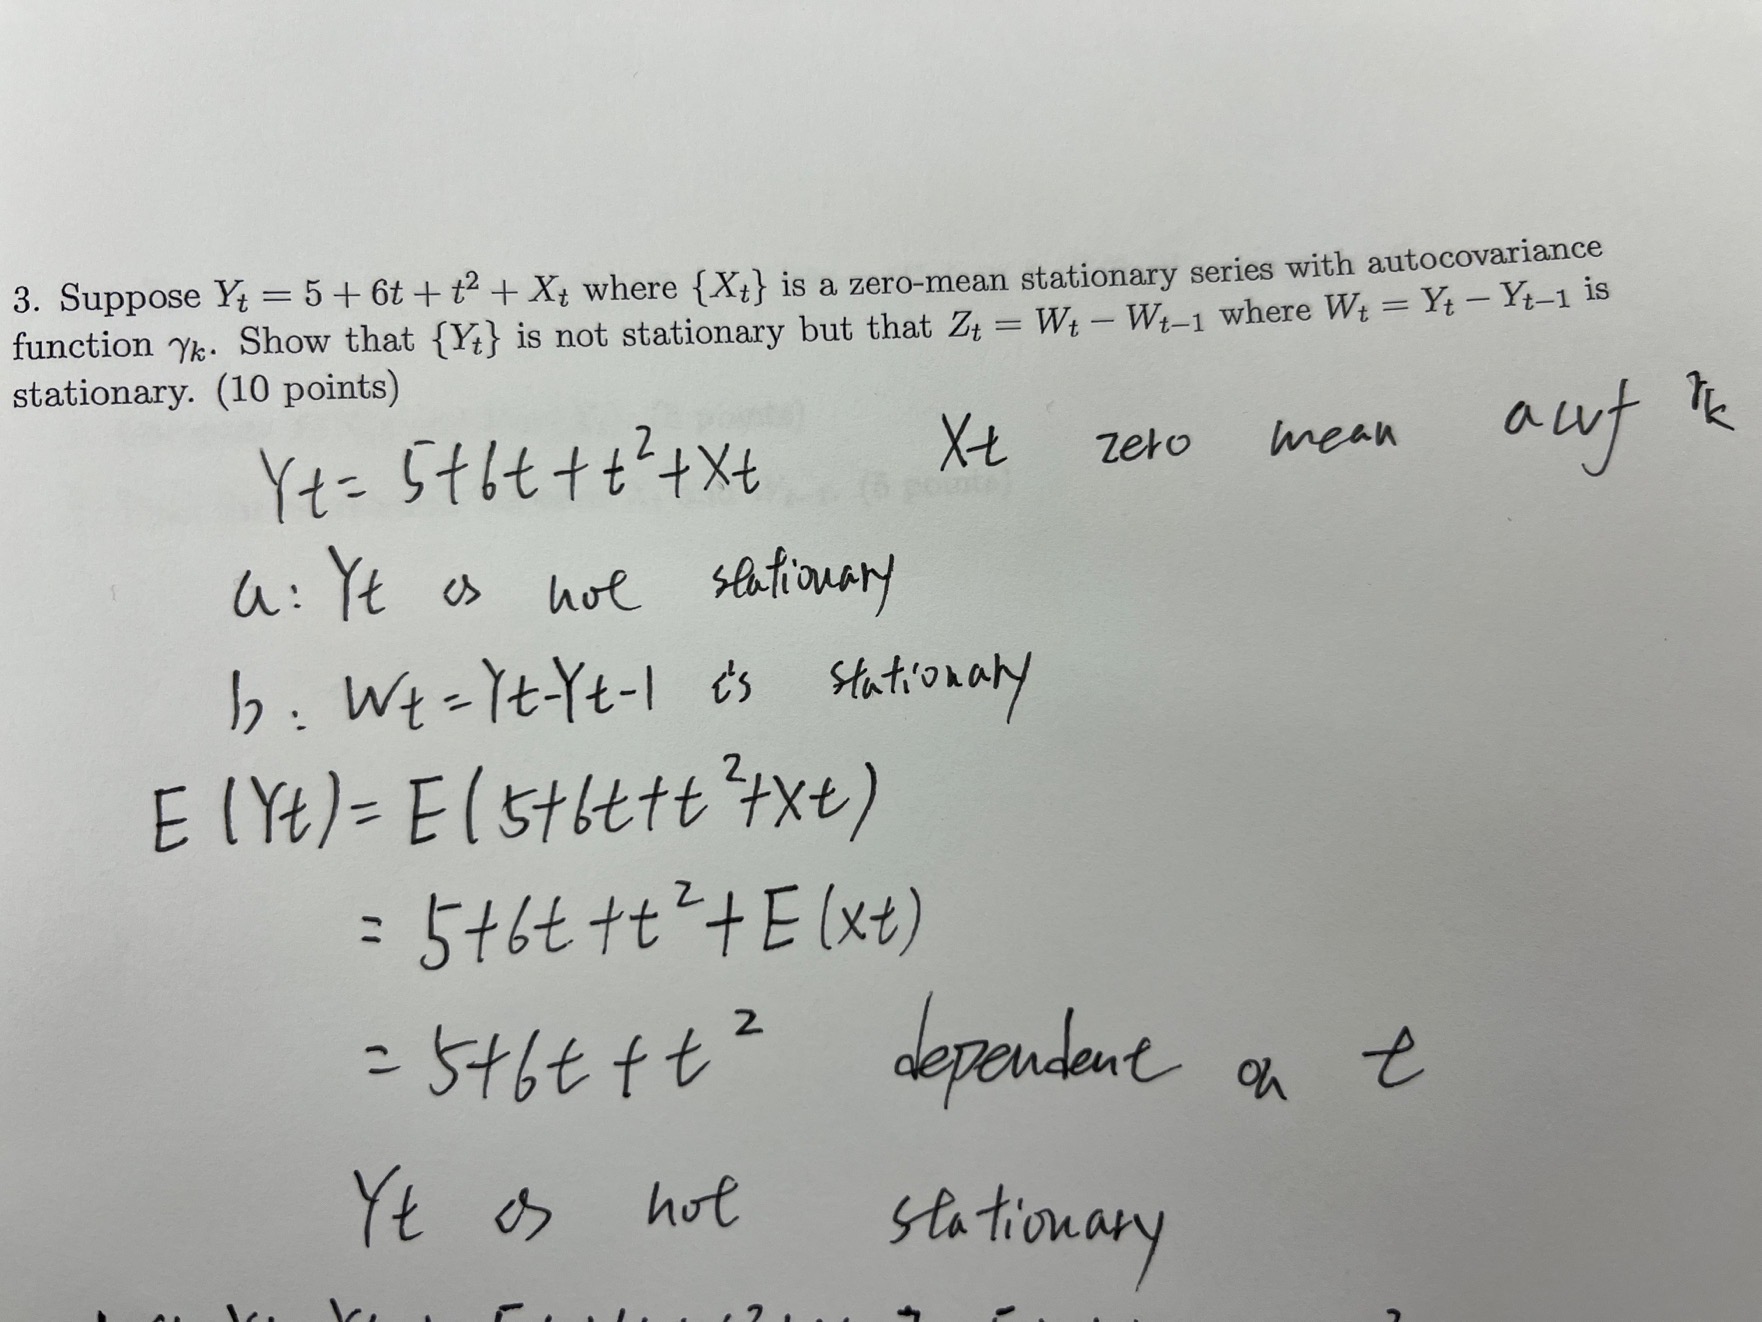 3. Suppose Yₜ = 5 + 6t + t² + Xₜ where {Xₜ} is a zero-mean stationary series with autocovariance
function γₖ. Show that {Yₜ} is not stationary but that Zₜ = Wₜ − Wₜ₋₁ where Wₜ = Yₜ − Yₜ₋₁ is
stationary. (10 points)
Yt = 5+6t+t²+Xt Xt zero mean acvf γk
a: Yt is not stationary
b: Wt = Yt-Yt-1 is stationary
E(Yt) = E(5+6t+t²+Xt)
= 5+6t+t²+E(Xt)
= 5+6t+t² dependent on t
Yt is not stationary